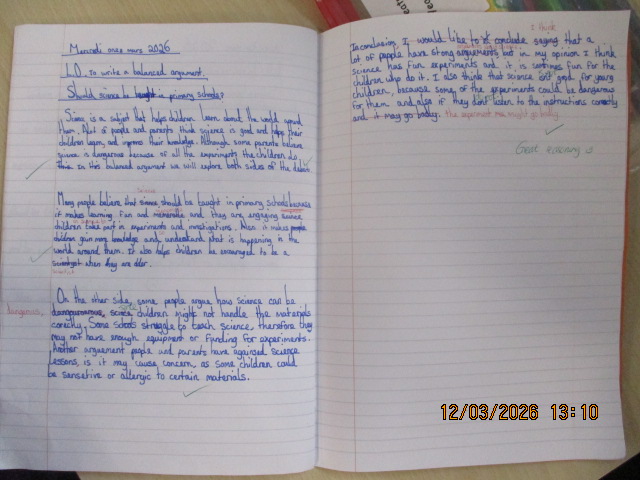 Mercredi onze mars 2026
L.O. To write a balanced argument.
Should science be taught in primary schools?
Science is a subject that helps children learn about the world around
them. Most of people and parents think science is good and helps their
children learn and improves their knowledge. Although some parents believe
science is dangerous because of all the experiments the children do
In this balanced argument we will explore both sides of the debate.
Science
Many people believe that should be taught in primary schools because
it makes learning fun and and they are engaging
children take part in experiments and investigations. Also it makes people
children gain more knowledge and understand what is happening in the
world around them. It also helps children be encouraged to be a
scientist when they are older.
scientist
On the other side, some people argue how science can be
dangerous,
children might not handle the materials
correctly. Some schools struggle to teach science, therefore they
may not have enough equipment or funding for experiments.
Another arguement people and parents have science
lessons, is it may cause concern, as some children could
be sensetive or allergic to certain materials.
I think
In conclusion, I would like to conclude saying that a
lot of people have strong arguements but in my opinion I think
science has fun experiments and it is fun for the
children who do it. I also think that science isnt good for young
children, because some of the experiments could be dangerous
for them and also if they dont listen to the instructions correctly
and it may go badly. the experiment may might go badly.
Great reasoning
12/03/2026 13:10